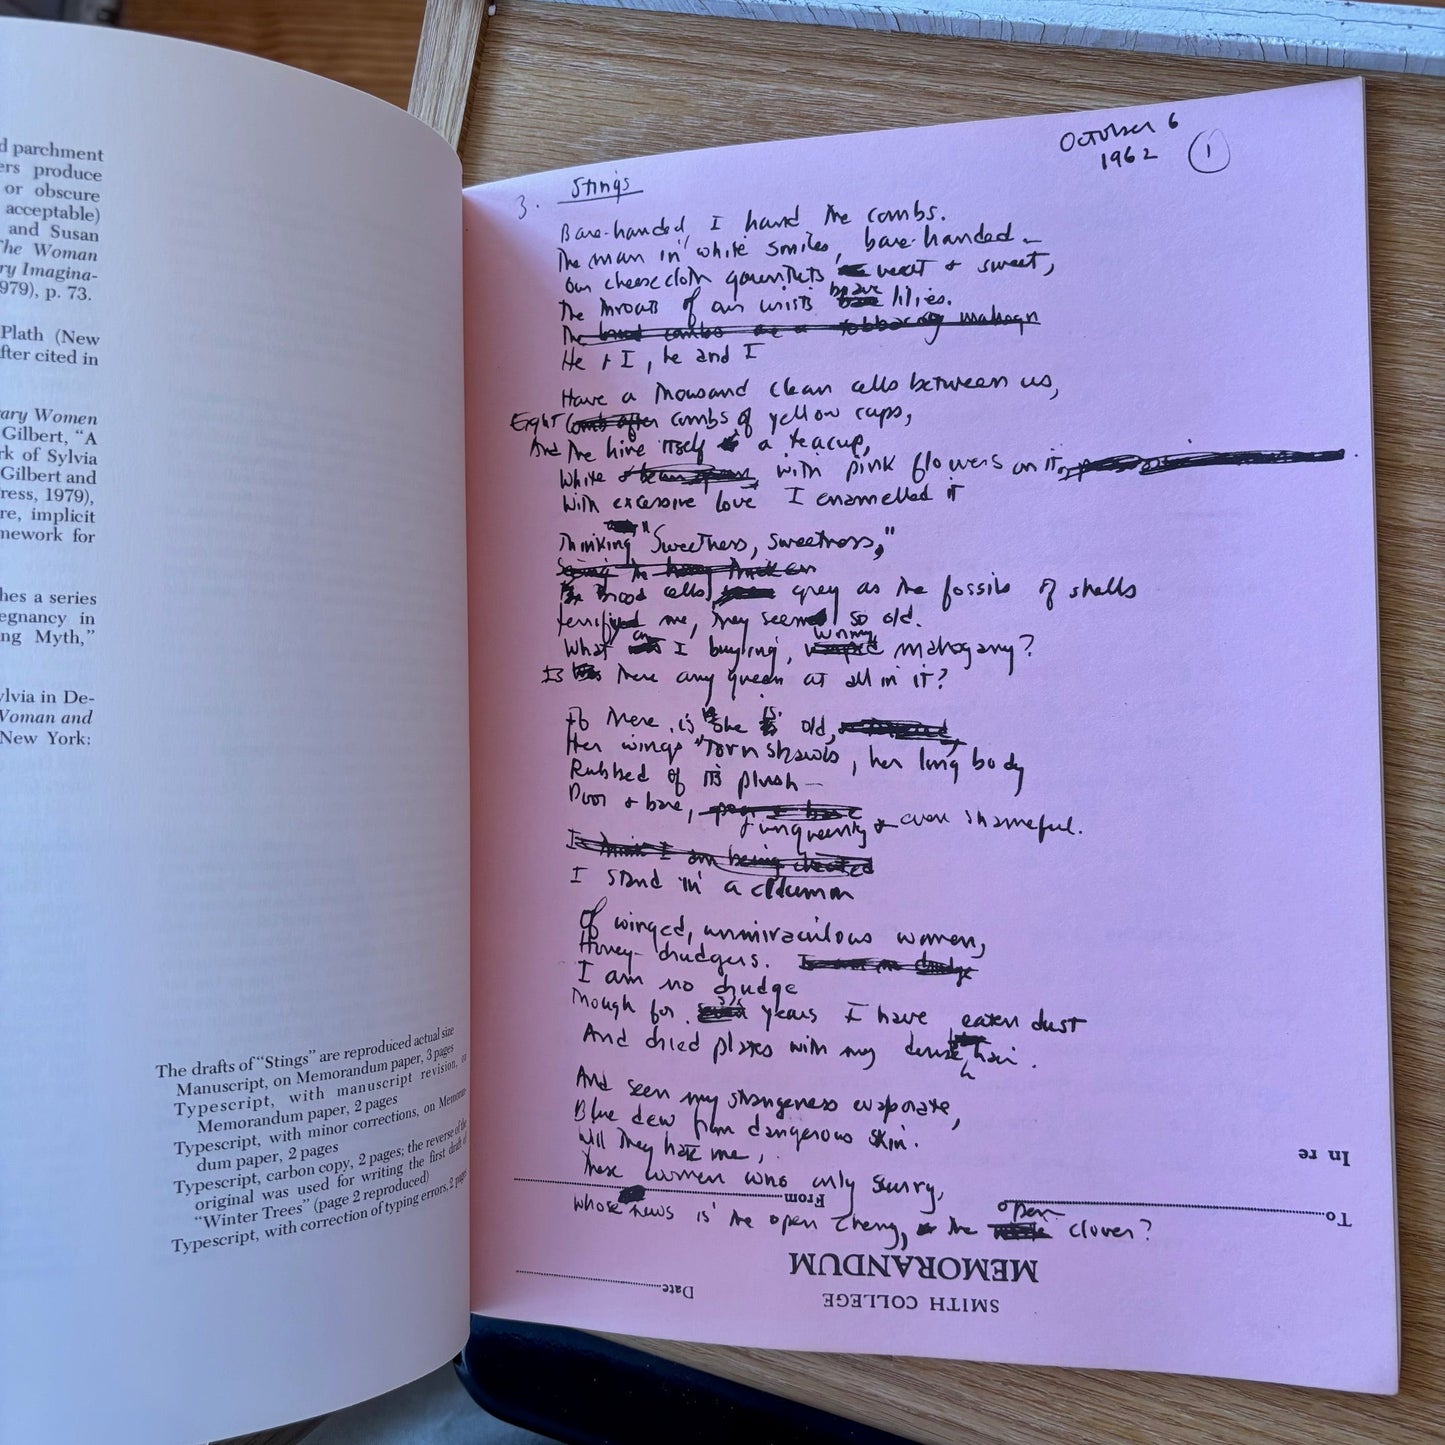 d parchment
ers produce
or obscure
acceptable)
and Susan
The Woman
ry Imagina-
979), p. 73.
Plath (New
fter cited in
ary Women
Gilbert, “A
rk of Sylvia
Gilbert and
ress, 1979),
re, implicit
mework for
hes a series
egnancy in
ng Myth,”
ylvia in De-
Woman and
New York:
The drafts of “Stings” are reproduced actual size
Manuscript, on Memorandum paper, 3 pages
Typescript, with manuscript revision, on
Memorandum paper, 2 pages
Typescript, with minor corrections, on Memoran-
dum paper, 2 pages
Typescript, carbon copy, 2 pages; the reverse of the
original was used for writing the first draft of
“Winter Trees” (page 2 reproduced)
Typescript, with correction of typing errors, 2 pages
October 6
1962 1
3. Stings
Bare-handed, I hand the combs.
The man in white smiles, bare-handed -
Our cheesecloth gauntlets neat & sweet,
The throats of our wrists brave lilies.
The brood combs are a mahogn
He & I, he and I
Have a thousand clean cells between us,
Eight combs of yellow cups,
And the hive itself a teacup,
White with pink flowers on it,
With excessive love I enamelled it
Thinking "Sweetness, sweetness,"
Seeing the
Brood cells grey as the fossils of shells
terrify me, they seem so old.
What am I buying, wormy mahogany?
Is there any queen at all in it?
If there is, she is old,
Her wings torn shawls, her long body
Rubbed of its plush —
Poor & bare, poor & bare
& unqueenly & even shameful.
I think I am being cheated
I stand in a column
Of winged, unmiraculous women,
Honey-drudgers. I am no drudge
I am no drudge
Though for years I have eaten dust
And dried plates with my dense hair.
And seen my strangeness evaporate,
Blue dew from dangerous skin.
Will they hate me,
These women who only scurry,
Whose news is the open cherry, the open clover?
In re
To
From
MEMORANDUM
SMITH COLLEGE
Date